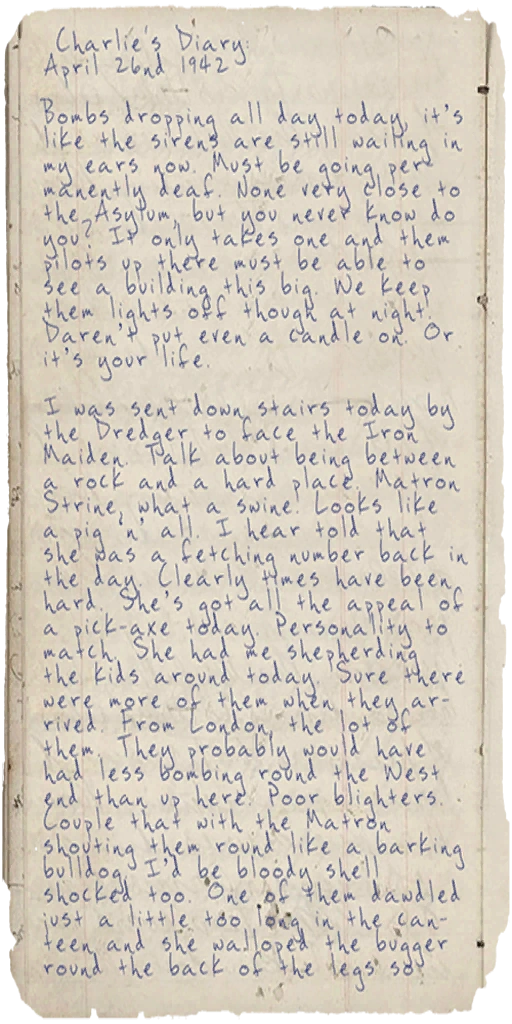 Charlie's Diary:
April 26nd 1942
Bombs dropping all day today, it's
like the sirens are still wailing in
my ears now. Must be going per-
manently deaf. None very close to
the Asylum, but you never know do
you? It only takes one and them
pilots up there must be able to
see a building this big. We keep
them lights off though at night.
Daren't put even a candle on. Or
it's your life.
I was sent down stairs today by
the Dredger to face the Iron
Maiden. Talk about being between
a rock and a hard place. Matron
Strine, what a swine. Looks like
a pig 'n' all. I hear told that
she was a fetching number back in
the day. Clearly times have been
hard. She's got all the appeal of
a pick-axe today. Personality to
match. She had me shepherding
the kids around today. Sure there
were more of them when they ar-
rived. From London, the lot of
them. They probably would have
had less bombing round the West
end than up here. Poor blighters.
Couple that with the Matron
shouting them round like a barking
bulldog, I'd be bloody shell
shocked too. One of them dawdled
just a little too long in the can-
teen and she walloped the bugger
round the back of the legs so